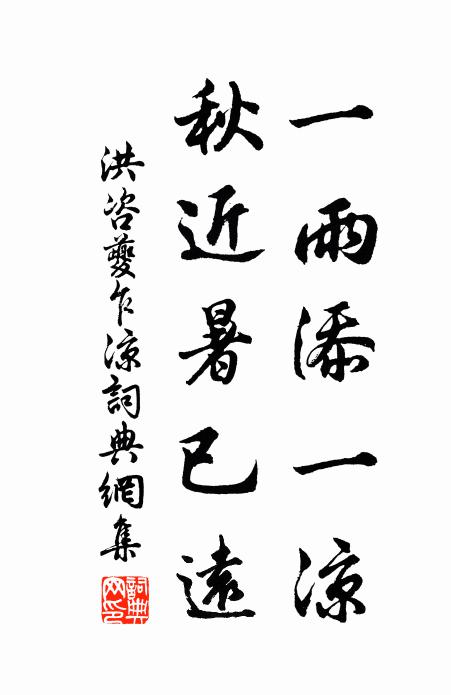 一雨添一涼
秋近暑已遠
洪咨夔乍涼詞典網集
詞典網印